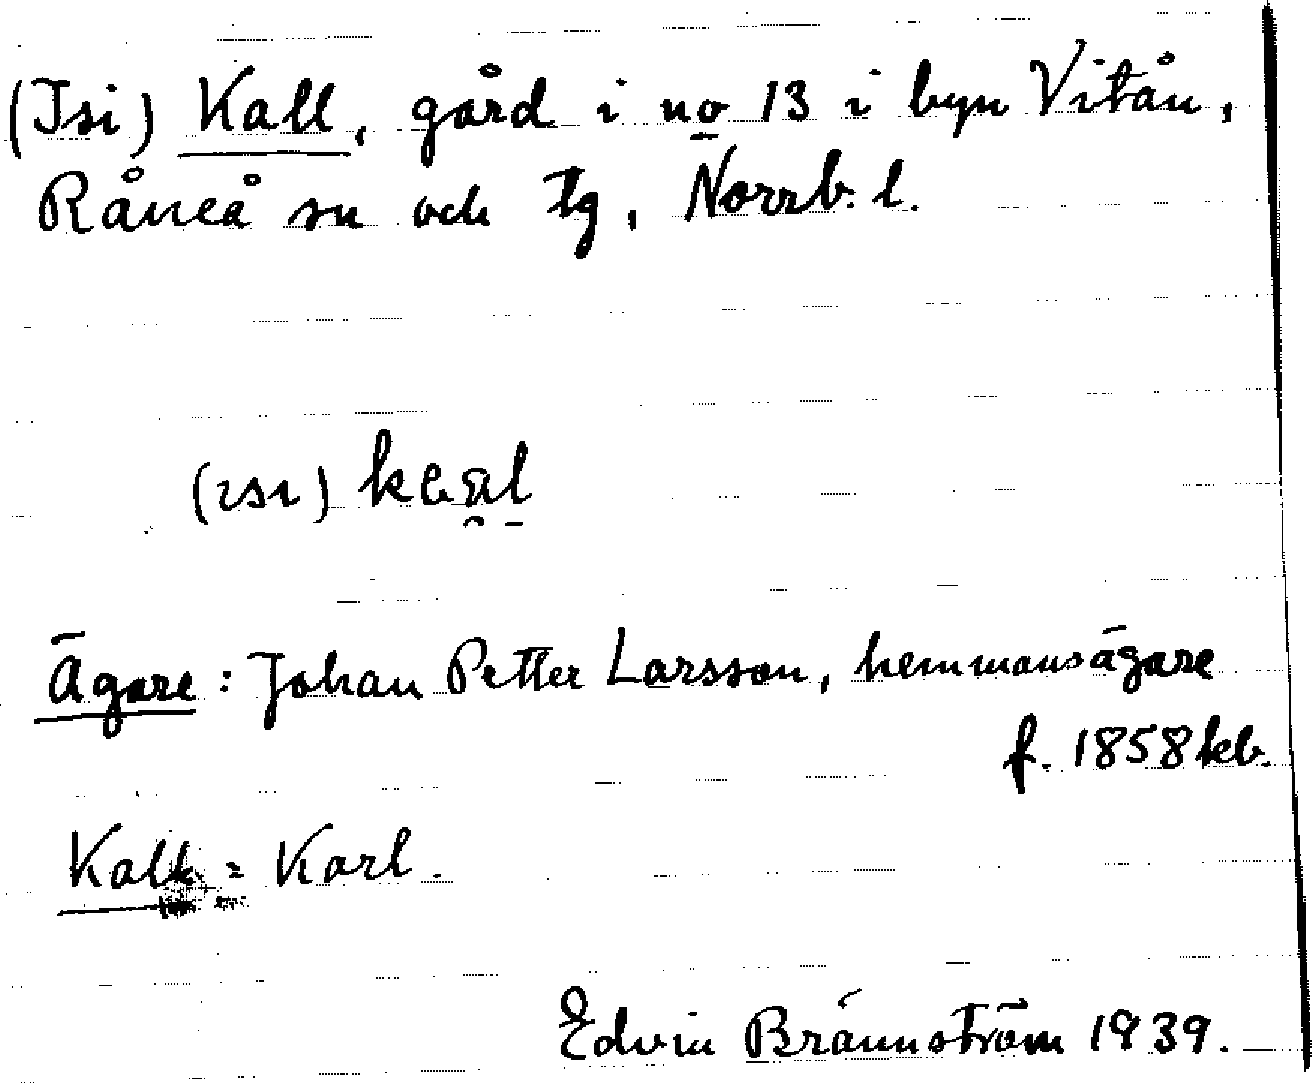 (Isi) Kall, gård i no 13 i byn Vitån,
Råneå sn och tg, Norrb. l.
(ısı)
Ägare: Johan Petter Larsson, hemmansägare
f. 1858 kb.
Kall = Karl.
Edvin Brännström 1939.